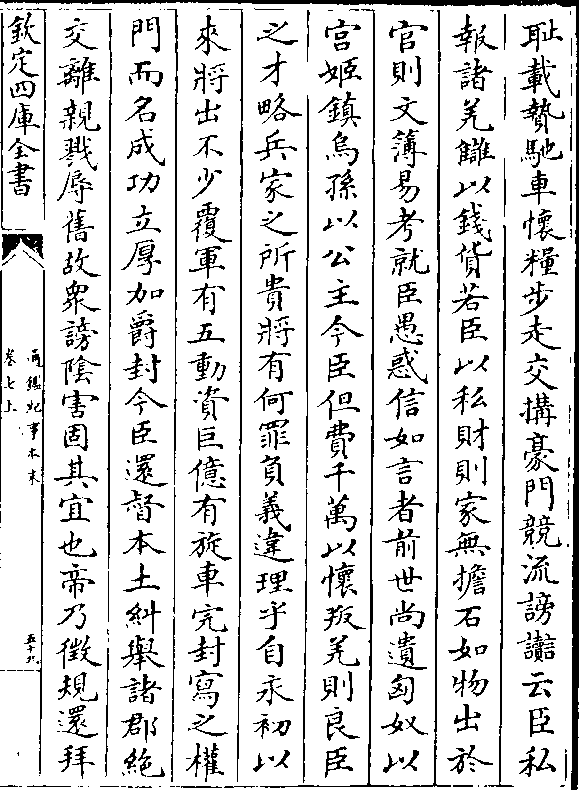 耻載贄馳車懷糧步走交搆豪門競流謗讟云臣私
報諸羌讎以錢貨若臣以私財則家無擔石如物出於
官則文簿易考就臣愚惑信如言者前世尚遺匈奴以
宫姬鎮烏孫以公主今臣但費千萬以懷叛羌則良臣
之才略兵家之所貴將有何罪負義違理乎自永初以
來將出不少覆軍有五動資巨億有旋車完封寫之權
門而名成功立厚加爵封今臣還督本土糾舉諸郡絶
交離親戮辱舊故衆謗陰害固其宜也帝乃徵規還拜
欽定四庫全書
通鑑紀事本末
卷七上
五十九